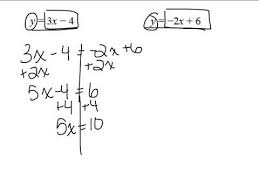 y=3x-4 y=-2x+6
3x-4=-2x+6
+2x +2x
5x-4=6
+4 +4
5x=10